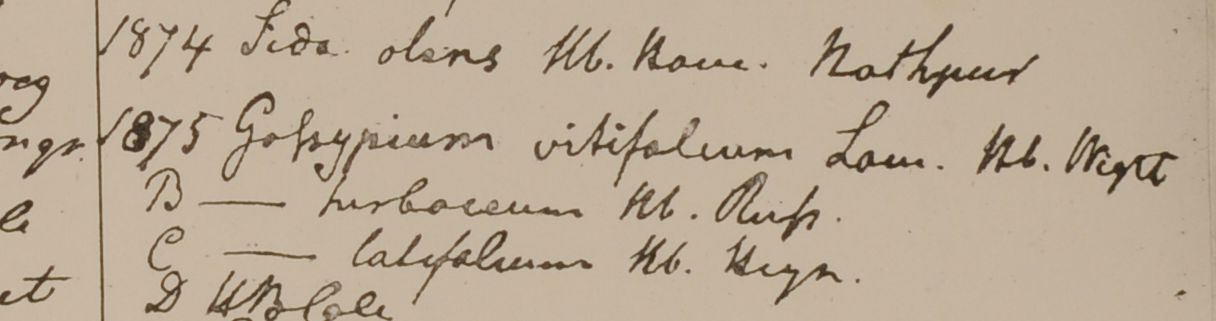 1874 Sida olens Hb. Ham. Nathpur
1875 Gossypium vitifolium Lam. Hb. Wight
B — herbaceum Hb. Russ.
C — latifolium Hb. Heyn.
D HB Calc